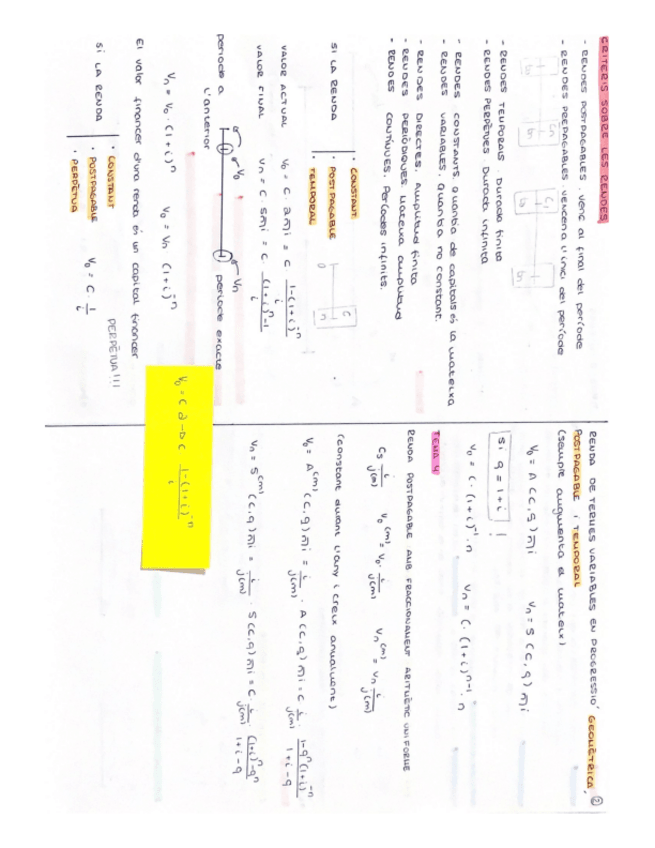 CRITERIS SOBRE LES RENDES
- RENDES POSTPAGABLES. Venc al final del període
- RENDES PREPAGABLES. Vencen a l'inici del període
- RENDES TEMPORALS. Durada finita
- RENDES PERPÈTUES. Durada infinita
- RENDES CONSTANTS. Quantia de capitals és la mateixa
- RENDES VARIABLES. Quantia no constant.
- RENDES DIRECTES. Amplitud finita
- RENDES PERIÒDIQUES. Mateixa amplitud
- RENDES CONTÍNUES. Períodes infinits.
SI LA RENDA
· CONSTANT
· POSTPAGABLE
· TEMPORAL
VALOR ACTUAL V₀ = C · a n̅| i = C (1-(1+i)⁻ⁿ)/i
VALOR FINAL Vn = C · S n̅| i = C ((1+i)ⁿ-1)/i
període a l'anterior
V₀
Vn
període exacte
Vn = V₀ · (1+i)ⁿ V₀ = Vn (1+i)⁻ⁿ
El valor financer d'una renda és un capital financer
SI LA RENDA
· CONSTANT
· POSTPAGABLE
· PERPÈTUA
V₀ = C · 1/i
PERPÈTUA!!!
②
RENDA DE TERMES VARIABLES EN PROGRESSIÓ GEOMÈTRICA,
POSTPAGABLE i TEMPORAL
(sempre augmenta el mateix)
V₀ = A (C, q) n̅| i Vn = S (C, q) n̅| i
Si q = 1+i !
V₀ = C · (1+i)⁻¹ · n Vn = C · (1+i)ⁿ⁻¹ · n
TEMA 4
RENDA POSTPAGABLE AMB FRACCIONAMENT ARITMÈTIC UNIFORME
i/j(m) V₀⁽ᵐ⁾ = V₀ · i/j(m) Vn⁽ᵐ⁾ = Vn i/j(m)
(constant durant l'any i creix anualment)
V₀ = A⁽ᵐ⁾ (C, q) n̅| i = i/j(m) · A (C, q) n̅| i = C i/j(m) · (1-qⁿ(1+i)⁻ⁿ)/(1+i-q)
Vn = S⁽ᵐ⁾ (C, q) n̅| i = i/j(m) · S (C, q) n̅| i = C · i/j(m) · ((1+i)ⁿ-qⁿ)/(1+i-q)
V₀ = C a → C (1-(1+i)⁻ⁿ)/i